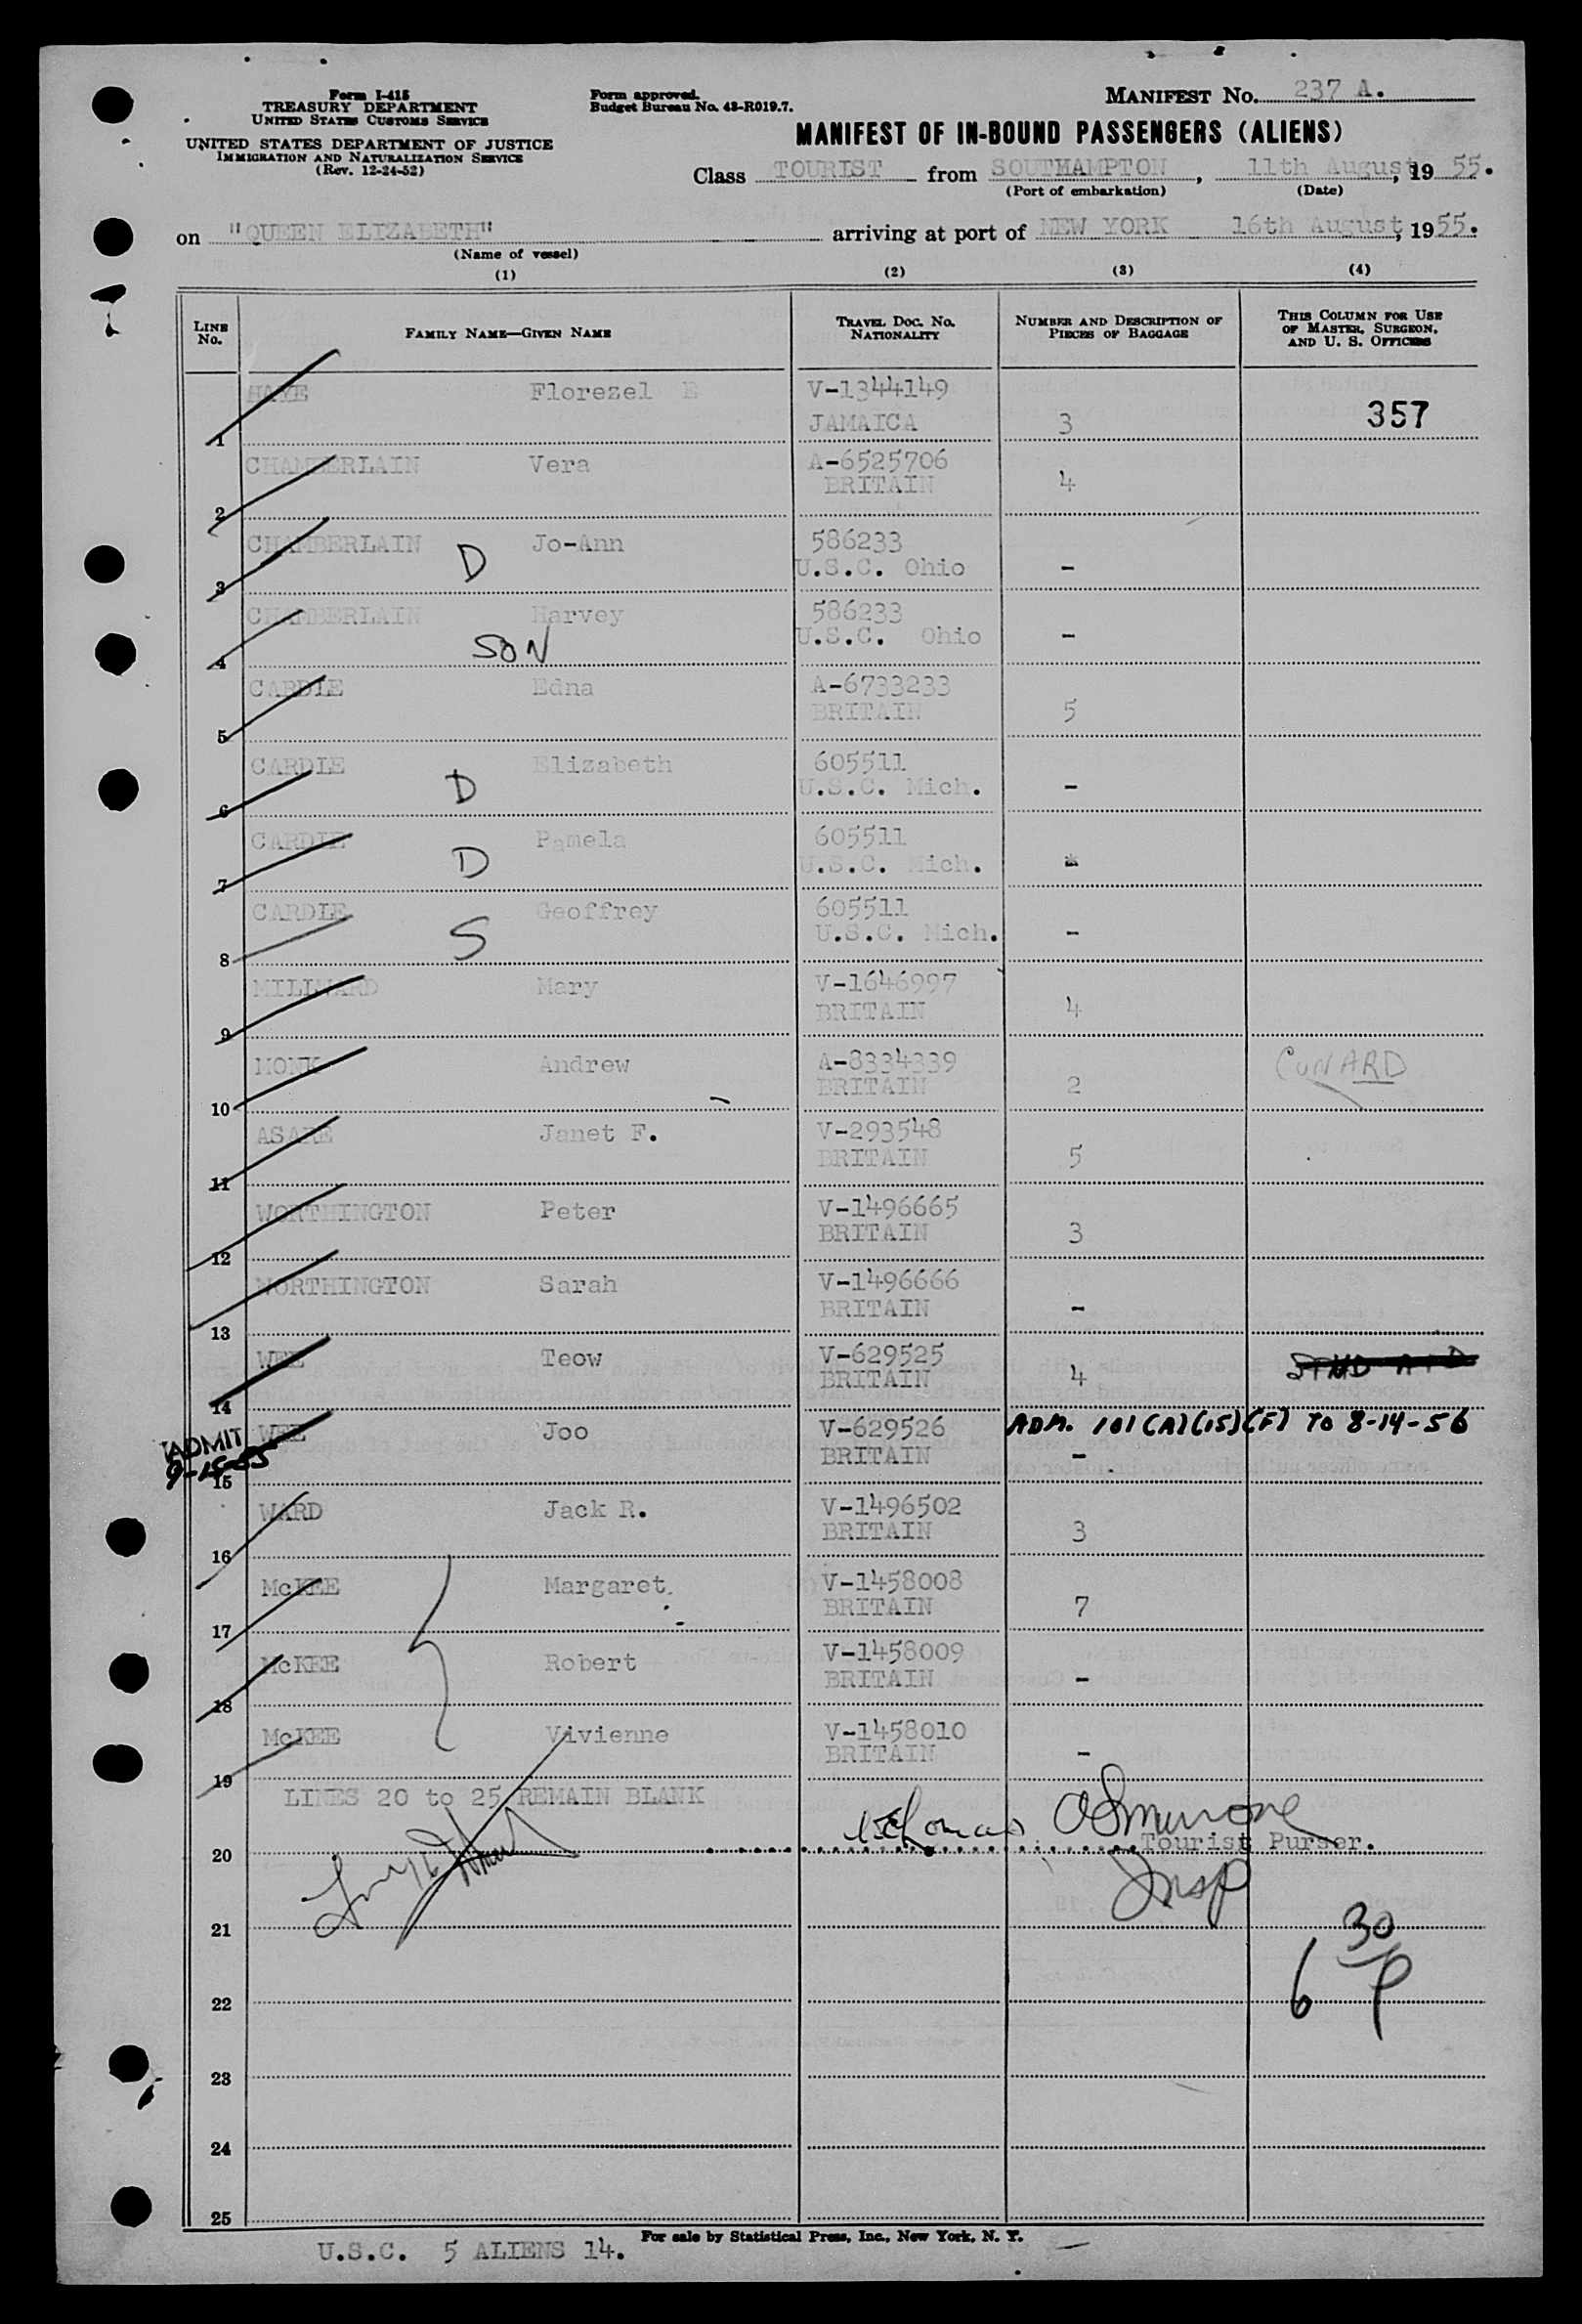 Form I-415
TREASURY DEPARTMENT
UNITED STATES CUSTOMS SERVICE
UNITED STATES DEPARTMENT OF JUSTICE
IMMIGRATION AND NATURALIZATION SERVICE
(Rev. 12-24-52)
Form approved.
Budget Bureau No. 43-R019.7.
MANIFEST No. 237 A.
MANIFEST OF IN-BOUND PASSENGERS (ALIENS)
Class TOURIST from SOUTHAMPTON, 11th August, 1955.
(Port of embarkation) (Date)
on "QUEEN ELIZABETH" arriving at port of NEW YORK 16th August, 1955.
(Name of vessel)
(1) (2) (3) (4)
LINE No. FAMILY NAME—GIVEN NAME TRAVEL DOC. NO. NATIONALITY NUMBER AND DESCRIPTION OF PIECES OF BAGGAGE THIS COLUMN FOR USE OF MASTER, SURGEON, AND U. S. OFFICERS
1 Florezel E V-1344149
JAMAICA 3 357
2 CHAMBERLAIN Vera A-6525706
BRITAIN 4
3 CHAMBERLAIN D Jo-Ann 586233
U.S.C. Ohio -
4 CHAMBERLAIN SON Harvey 586233
U.S.C. Ohio -
5 CARDLE Edna A-6733233
BRITAIN 5
6 CARDLE D Elizabeth 605511
U.S.C. Mich. -
7 CARDLE D Pamela 605511
U.S.C. Mich.
8 CARDLE S Geoffrey 605511
U.S.C. Mich. -
9 MILLWARD Mary V-1646997
BRITAIN 4
10 MONK Andrew A-8334339
BRITAIN 2 CUNARD
11 ASARE Janet F. V-293548
BRITAIN 5
12 WORTHINGTON Peter V-1496665
BRITAIN 3
13 WORTHINGTON Sarah V-1496666
BRITAIN -
14 WEE Teow V-629525
BRITAIN 4
ADMIT
15 WEE Joo V-629526 ADM. 101(A)(15)(F) TO 8-14-56
BRITAIN -
16 WARD Jack R. V-1496502
BRITAIN 3
17 McKEE Margaret. V-1458008
BRITAIN 7
18 McKEE Robert V-1458009
BRITAIN -
19 McKEE Vivienne V-1458010
BRITAIN -
LINES 20 to 25 REMAIN BLANK
20 Tourist Purser.
Insp
21
30
22 6 P
23
24
25
For sale by Statistical Press, Inc., New York, N. Y.
U.S.C. 5 ALIENS 14.